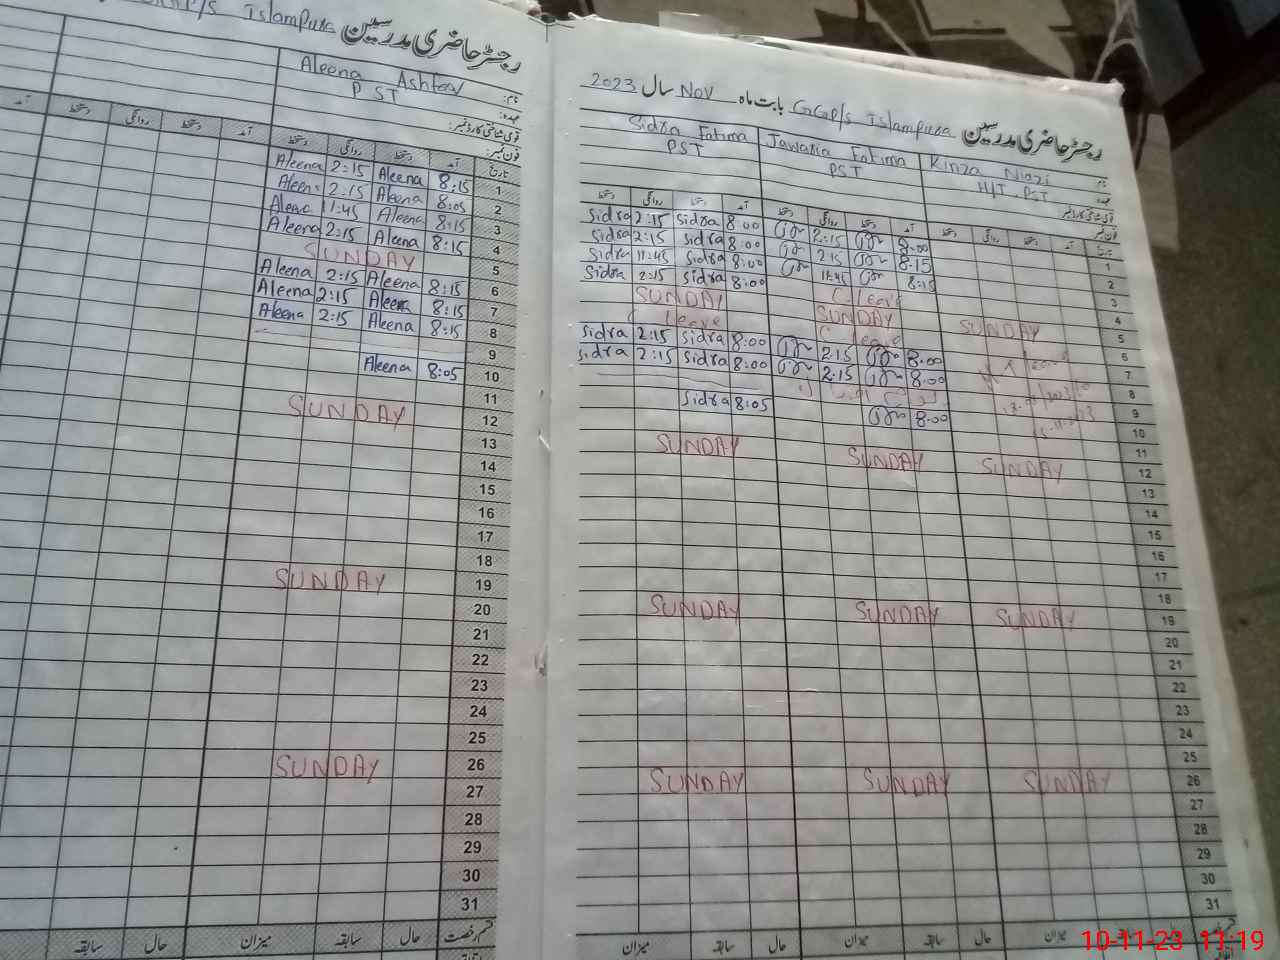 G/P/s Islampura رجسٹر حاضری مدرسین
Aleena Ashfaq نام:
PST عہدہ:
قومی شناختی کارڈ نمبر:
فون نمبر:
تاریخ آمد دستخط روانگی دستخط آمد دستخط روانگی دستخط آمد
Aleena 2:15 Aleena 8:15 1
Aleena 2:15 Aleena 8:05 2
Aleena 11:45 Aleena 8:15 3
Aleena 2:15 Aleena 8:15 4
SUNDAY 5
Aleena 2:15 Aleena 8:15 6
Aleena 2:15 Aleena 8:15 7
Aleena 2:15 Aleena 8:15 8
9
Aleena 8:05 10
11
SUNDAY 12
13
14
15
16
17
18
SUNDAY 19
20
21
22
23
24
25
SUNDAY 26
27
28
29
30
31
قسم رخصت حال سابقہ میزان حال سابقہ
رجسٹر حاضری مدرسین GGP/s Islampura بابت ماہ Nov سال 2023
Sidra Fatima Jawaria Fatima Kinza Niazi نام
PST PST H/T PST عہدہ
قومی شناختی کارڈ نمبر
فون نمبر
تاریخ آمد دستخط روانگی دستخط آمد دستخط روانگی دستخط آمد دستخط روانگی دستخط
Sidra 2:15 Sidra 8:00 2:15 8:00 1
Sidra 2:15 Sidra 8:00 2:15 8:15 2
Sidra 11:45 Sidra 8:00 11:45 8:15 3
Sidra 2:15 Sidra 8:00 C. Leave 4
SUNDAY SUNDAY SUNDAY 5
C Leave C Leave 6
Sidra 2:15 Sidra 8:00 2:15 8:00 7
Sidra 2:15 Sidra 8:00 2:15 8:00 8
9
Sidra 8:05 8:00 10
11
SUNDAY SUNDAY SUNDAY 12
13
14
15
16
17
18
SUNDAY SUNDAY SUNDAY 19
20
21
22
23
24
25
SUNDAY SUNDAY SUNDAY 26
27
28
29
30
31
حال سابقہ میزان حال سابقہ میزان
10-11-23 11:19